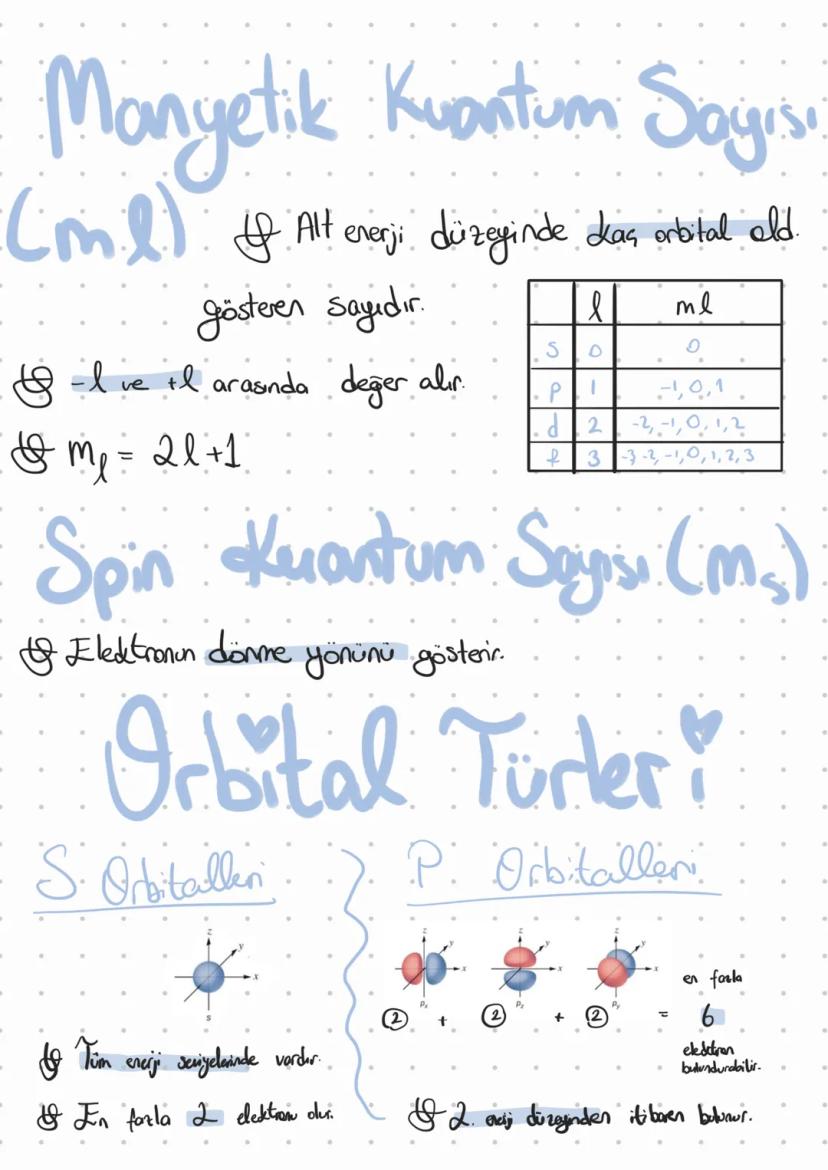 Manyetik Kuantum Sayısı
(ml)
Alt enerji düzeyinde kaç orbital old.
gösteren sayıdır.
-l ve +l arasında değer alır.
mₗ = 2l+1
l ml
s 0 0
p 1 -1, 0, 1
d 2 -2, -1, 0, 1, 2
f 3 -3 -2, -1, 0, 1, 2, 3
Spin Kuantum Sayısı (mₛ)
Elektronun dönme yönünü gösterir.
Orbital Türleri
S Orbitalleri
z
y
x
s
Tüm enerji seviyelerinde vardır.
En fazla 2 elektronu olur.
P Orbitalleri
z z z
y y y
x x x
Pₓ P_z P_y
2 + 2 + 2 = 6
en fazla
elektron
bulundurabilir.
2. enerji düzeyinden itibaren bulunur.